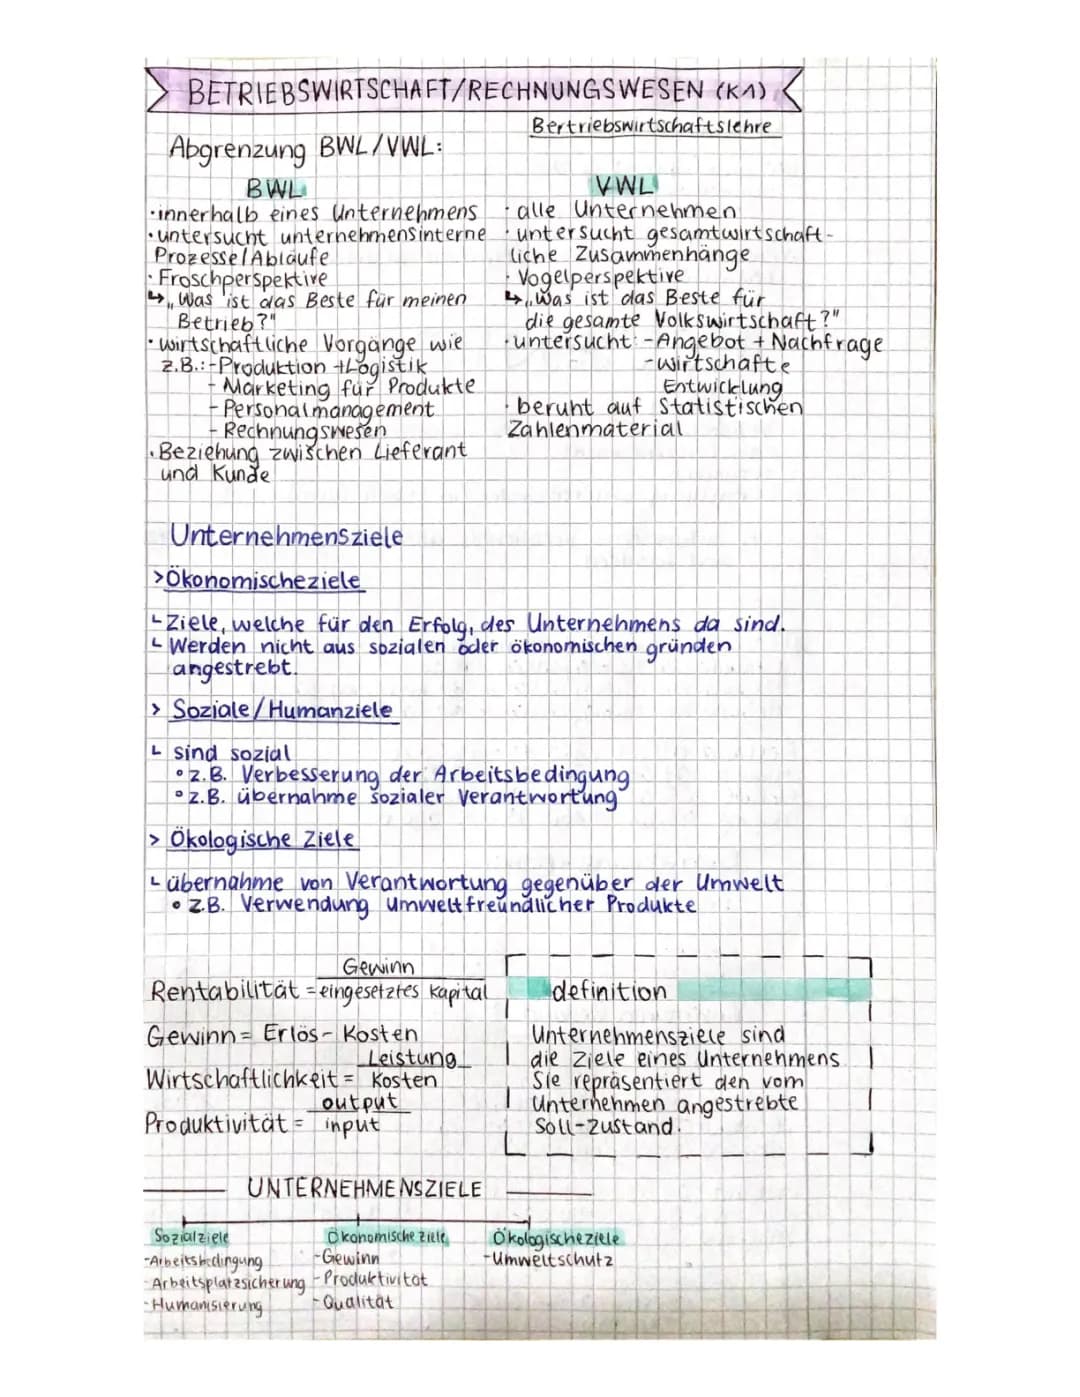 BETRIEBSWIRTSCHAFT/RECHNUNGSWESEN (K1)
Bertriebswirtschaftslehre
Abgrenzung BWL/VWL:
BWL
·innerhalb eines Unternehmens
·untersucht unternehmensinterne
Prozesse/Abläufe
·Froschperspektive
↳„Was ist das Beste für meinen
Betrieb?"
·wirtschaftliche Vorgänge wie
z.B.:-Produktion +Logistik
-Marketing für Produkte
-Personalmanagement
-Rechnungswesen
·Beziehung zwischen Lieferant
und Kunde
VWL
·alle Unternehmen
·untersucht gesamtwirtschaft-
liche Zusammenhänge
·Vogelperspektive
↳„Was ist das Beste für
die gesamte Volkswirtschaft?"
·untersucht:-Angebot + Nachfrage
-wirtschafte
Entwicklung
·beruht auf Statistischen
Zahlenmaterial
Unternehmensziele
>Ökonomischeziele
└Ziele, welche für den Erfolg, des Unternehmens da sind.
└Werden nicht aus sozialen oder ökonomischen gründen
angestrebt.
> Soziale/Humanziele
└ sind sozial
°z.B. Verbesserung der Arbeitsbedingung
°z.B. übernahme sozialer Verantwortung
> Ökologische Ziele
└übernahme von Verantwortung gegenüber der Umwelt
• z.B. Verwendung umweltfreundlicher Produkte
Gewinn
Rentabilität =eingesetztes Kapital
Gewinn= Erlös- Kosten
Leistung
Wirtschaftlichkeit= Kosten
output
Produktivität= input
definition
Unternehmensziele sind
die Ziele eines Unternehmens
Sie repräsentiert den vom
Unternehmen angestrebte
Soll-Zustand.
UNTERNEHMENSZIELE
Sozialziele
-Arbeitsbedingung
-Arbeitsplatzsicherung
-Humanisierung
Ökonomische ziele
-Gewinn
-Produktivität
-Qualität
Ökologischeziele
-Umweltschutz